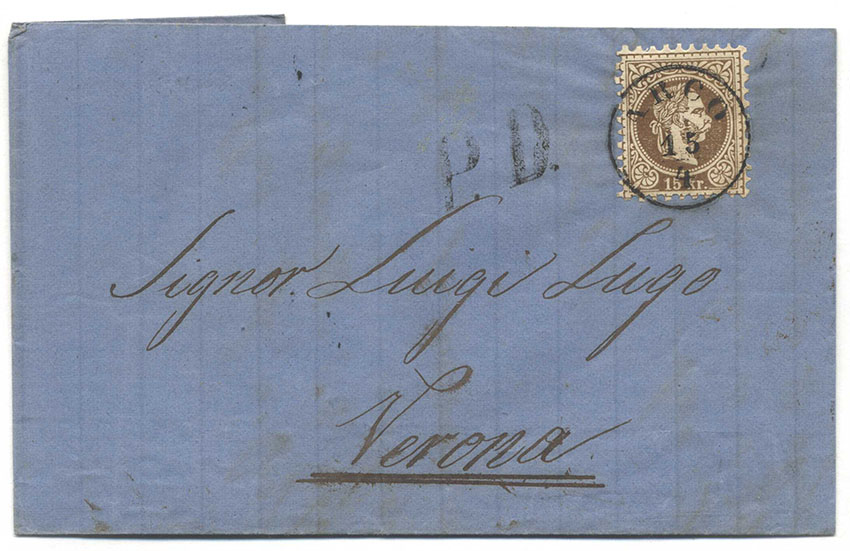 ARCO
15
4
15 Kr.
P. D.
Signor Luigi Lugo
Verona